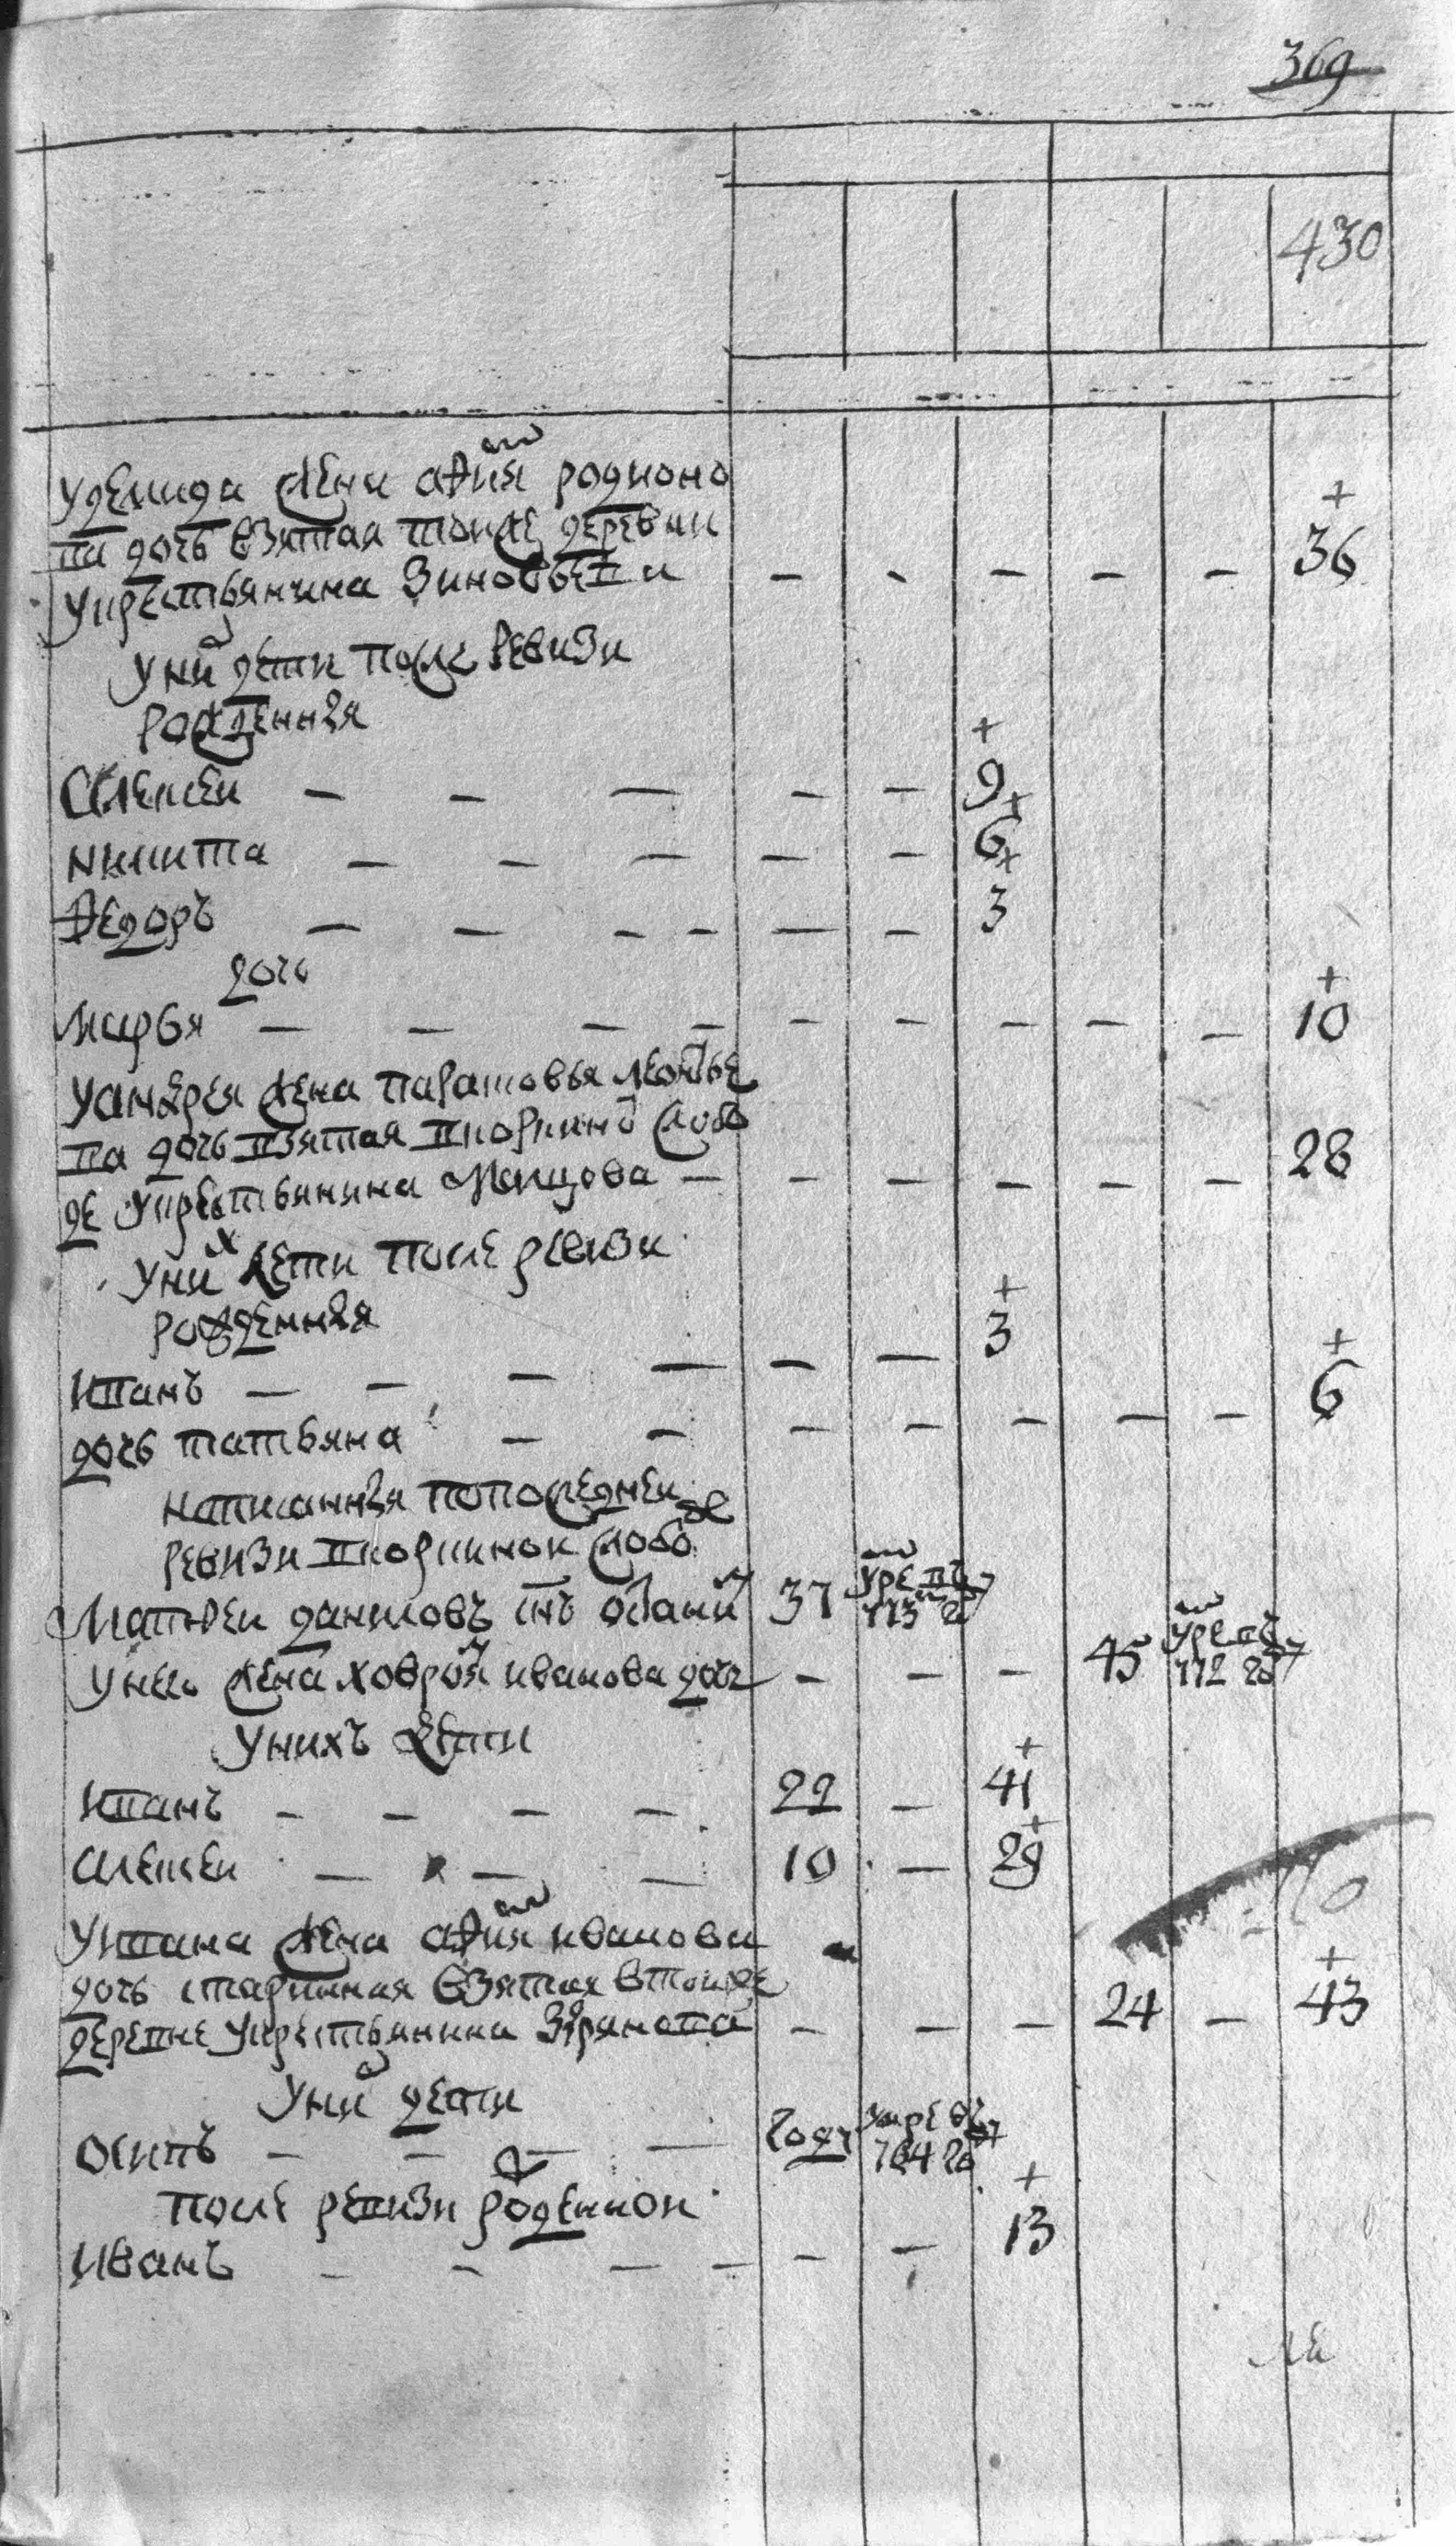 369
430
У демида жена афимья родионо
ва дочь взятая тоиже деревни
у крестьянина Зиновьева + 36
У них дети после ревизи
рожденныя
Алексеи 9 +
никита 6 +
Федоръ 3
дочь
марья + 10
У андрея жена парасковья леонтье
ва дочь взятая в коркинои слобо
де у крестьянина 28
У них дети после ревизи
рожденныя
Иванъ + 3
дочь татьяна + 6
написанныя по последнеи
ревизи в коркинои слободе
Матфеи даниловъ снъ 37 умре въ 773 году
У него жена ховронья иванова дочь 45 умре въ 772 году
У нихъ дети
Иванъ 22 + 41
алексеи 10 + 29
У ивана жена афимья иванова
дочь старинная взятая в тоиже
деревне у крестьянина Зырянова 24 + 43
У них дети
осипъ году умре въ 764 году
после ревизи рожденнои
Иванъ + 13